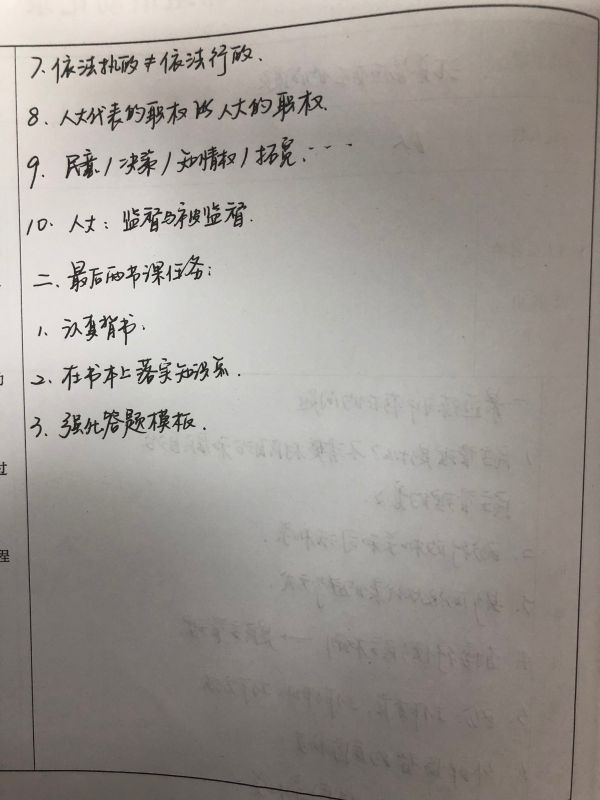 7. 依法执政≠依法行政.
8. 人大代表的职权 VS 人大的职权.
9. 民意/决策/知情权/拓宽……
10. 人大：监督与被监督.
二、最后两节课任务：
1. 认真背书.
2. 在书本上落实知识体系.
3. 强化答题模板.
过
程